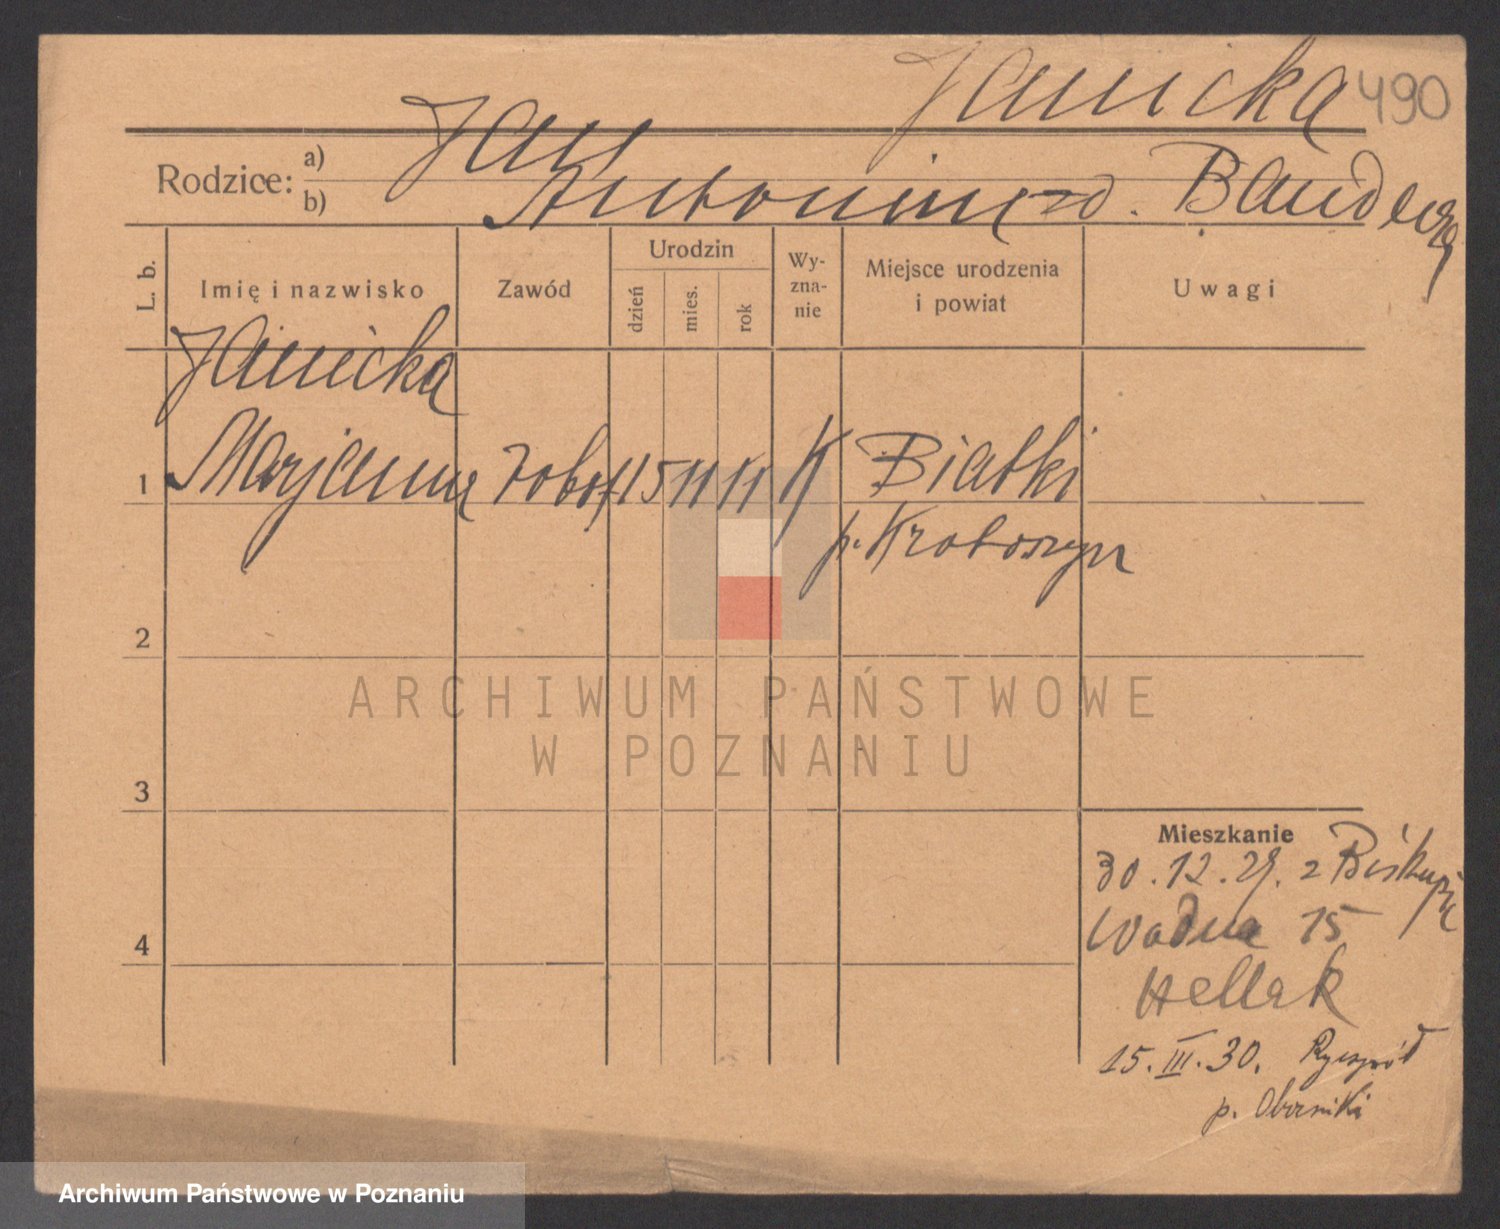 Janicka 490
Jan
Rodzice: a)
b) Antonina zd. Bandera
L. b.
Imię i nazwisko
Zawód
Urodzin
dzień
mies.
rok
Wy-
zna-
nie
Miejsce urodzenia
i powiat
Uwagi
Janicka
1 Marjanna robot 15 11 11 K Białki
p. Krotoszyn
2
3
4
Mieszkanie
30.12.29. z Biskupic
Wodna 15
15.III.30.
p. Oborniki
ARCHIWUM PAŃSTWOWE
W POZNANIU
Archiwum Państwowe w Poznaniu